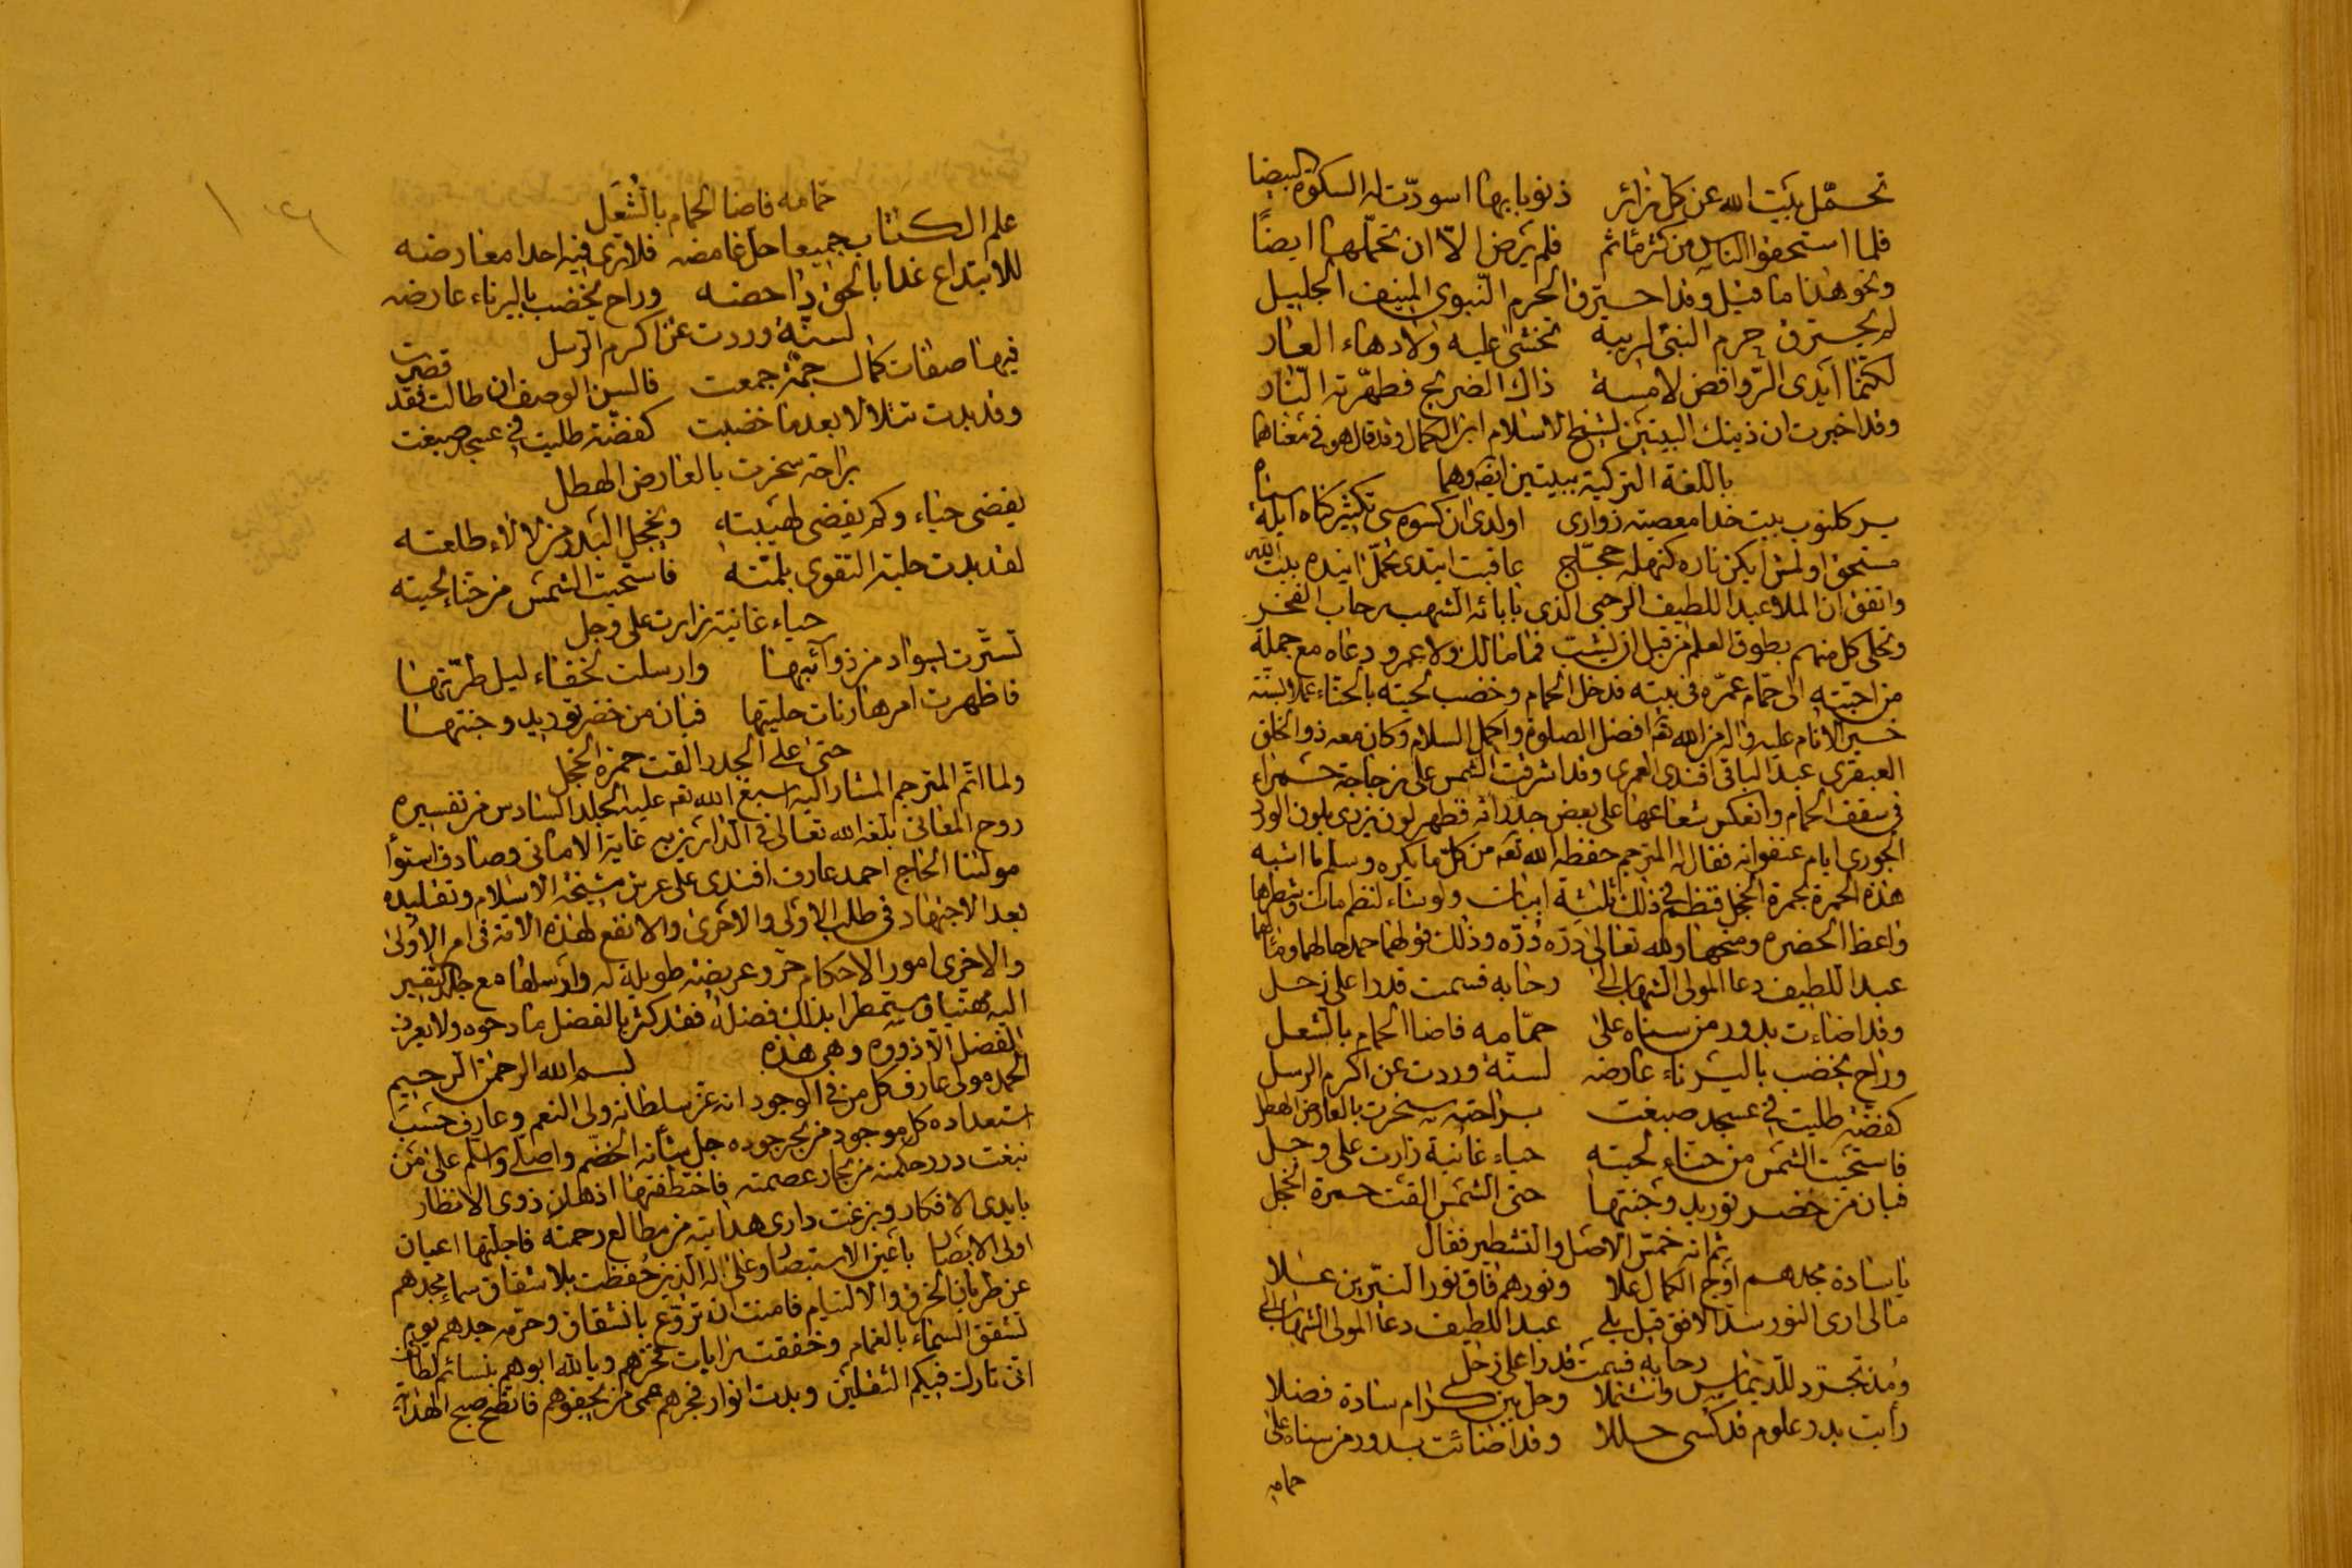 تحمّل بيت الله عن كل زائر ذنوبا بها اسودّت له الكسوة البيضا
فلما استحقوا الناس من كثر مأثم فلم يرض الّا ان تحمّلها ايضًا
ونحو هذا ما قيل وقد احترق الحرم النبوي المنيف الجليل
لم يحترق حرم النبي لريبة تخشى عليه ولا دهاه العار
لكنما ايدي الروافض لامست ذاك الضريح فطهّرته النار
وقد اخبرت ان ذينك البيتين لشيخ الاسلام ابن الكمال وقد قال هو في معناهما
باللغة التركية ببيتين ايضا وهما
بيت خدا معصيت زوارى اولدى
عاقبت ايتدى تحمّل بيت الله
واتفق ان الملا عبد اللطيف الرحبي الذي بابائه الشهب رحاب الفخر
وتحلى كل منهم بطوق العلم من قبل ان يشب فما مالك ولا عمرو دعاه مع جملة
من احبته الى حمّام عمّره في بيته فدخل الحمام وخضب لحيته بالحناء عملا بسنّة
خير الانام عليه واله من الله تعم افضل الصلوة واكمل السلام وكان معه ذو الخلق
العبقري عبد الباقي افندي العمري وقد اشرقت الشمس على زجاجة حمراء
في سقف الحمام وانعكس شعاعها على بعض جدرانه فظهر لون يزري بلون الورد
الجوري ايام عنفوانه فقال له المترجم حفظه الله تعم من كلّ ما يكره وسلم ما اشبه
هذه الحمرة بحمرة الخجل فنظم في ذلك ثلثة ابيات ولو شاء لنظم مائة وشطرها
واعظ الحضره ومنحها ولله تعالى درّه ودرّه وذلك قولهما حمد حالهما ومآلهما
عبد اللطيف دعا المولى الشهاب الى رحابه فسمت قدرا على زحل
وقد اضاءت بدور من سناه على حمّامه فاضا الحمام بالشعل
وراح يخضب باليرناء عارضه لسنّة وردت عن اكرم الرسل
كفضّة طليت في عسجد صبغت براحته سخرت بالعارض الهطل
فاستحيت الشمس من حناء لحيته حياء غانية زارت على وجل
فبان من خضر توريد وجنتها حتى الشمس القت حمرة الخجل
ثم انه خمّس الاصل والتشطير فقال
يا سادة مجدهم اوج الكمال علا ونورهم فاق نور النيّرين علا
ما لى ارى النور سدّ الافق قبل بلى عبد اللطيف دعا المولى الشهاب الى
رحابه فسمت قدرا على زحل
ومذ تجرّد للديماس واشتملا وحل بين كرام سادة فضلا
رأيت بدر علوم قد كسى حللا وقد اضائت بدور من سناه على
حمامه
حمامه فاضا الحمام بالشعل
علم الكتاب جميعا حل غامضه فلا ترى فيه احدا معارضه
للابتداع غدا بالحق داحضه وراح يخضب باليرناء عارضه
لسنّة وردت عن اكرم الرسل
فيها صفات كمال جمّة جمعت فالسن الوصف ان طالت فقد قصرت
وقد بدت تتلالا بعد ما خضبت كفضّة طليت في عسجد صبغت
براحته سخرت بالعارض الهطل
يغضى حياء وكم يغضى لهيبته ويخجل البدر من لألاء طلعته
لقد بدت حلية التقوى بلمّته فاستحيت الشمس من حناء لحيته
حياء غانية زارت على وجل
تستّرت بسواد من ذوآئبها وارسلت لخفاء ليل طرّتها
فاظهرت امرها رنات حليتها فبان من خضر توريد وجنتها
حتى على الجدر القت حمرة الخجل
ولما اتم المترجم المشار اليه اسبغ الله تعم عليه الجلد السادس من تفسيره
روح المعاني بلغه الله تعالى في الدارين غاية الاماني وصادف استوأ
مولنا الحاج احمد عارف افندي على عرش مشيخة الاسلام وتقليده
بعد الاجتهاد في طلب الاولى والاخرى والانفع لهذه الامّة في ام الاولى
والاخرى امور الاحكام حرّر عريضة طويلة له وارسلها مع جلد التفسير
اليه مهنيا ومستمطرا بذلك فضله فقد كثر بالفضل مادحوه ولا يعرف
الفضل الّا ذووه وهي هذه بسم الله الرحمن الرحيم
احمد مولى عارف كل من في الوجود انه عزّ سلطانه ولي النعم وعارف حسب
استعداده كل موجود من بحر جوده جل شأنه الخضم واصلى واسلم على من
نبغت درر حكمته من بحار عصمته فاختطفتها اذهان ذوي الانظار
بايدى الافكار وبزغت داري هدايته من مطالع رحمته فاجلتها اعيان
اولى الابصار باعين الاستبصار وعلى اله الذين حفظت بلا شقاق سماء مجدهم
عن طريان الخرق والالتيام فامنت ان تروّع بانشقاق وحرمة جدهم يوم
تشقق السماء بالغمام وخفقت رايات عزهم وبالله ابوهم بنسائم لطائف
انى تارك فيكم الثقلين وبدت انوار فجرهم عمى من يجفوهم فاتضح صبح الهداية